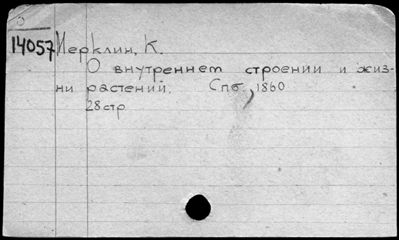 14057 Мерклин, К.
О внутреннем строении и жиз-
ни растений. Спб, 1860
28 стр